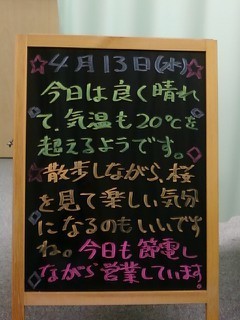 ☆4月13日(水)☆
今日は良く晴れ
て、気温も20℃を
超えるようです。
☆散歩しながら、桜
を見て楽しい気分
になるのもいいです
ね。今日も節電し
ながら営業しています。